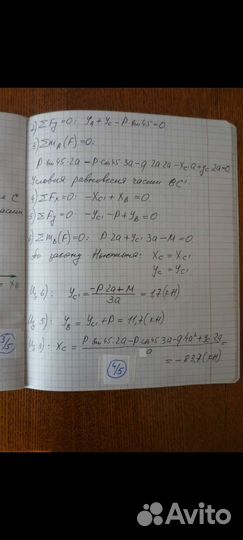 2) ΣFy=0: YA+Yc-P·sin45=0
3) ΣmA(F)=0:
P·sin45·2a-P·cos45·3a-q·2a·2a-Xc·a+Yc·2a=0
Условия равновесия части BC:
4) ΣFx=0: -Xc1+XB=0
5) ΣFy=0 -Yc1-P+YB=0
6) ΣmB(F)=0: P·2a+Yc1·3a-M=0
По закону Ньютона: Xc=Xc1
Yc=Yc1
Из 6): Yc1=(-P·2a+M)/3a=1,7(кН)
Из 5): YB=Yc1+P=11,7(кН)
Из 3): Xc=(P·sin45·2a-P·cos45·3a-q·4a²+Yc·2a)/a=
=-83,7(кН)
4/5
3/5
C
XB
Avito